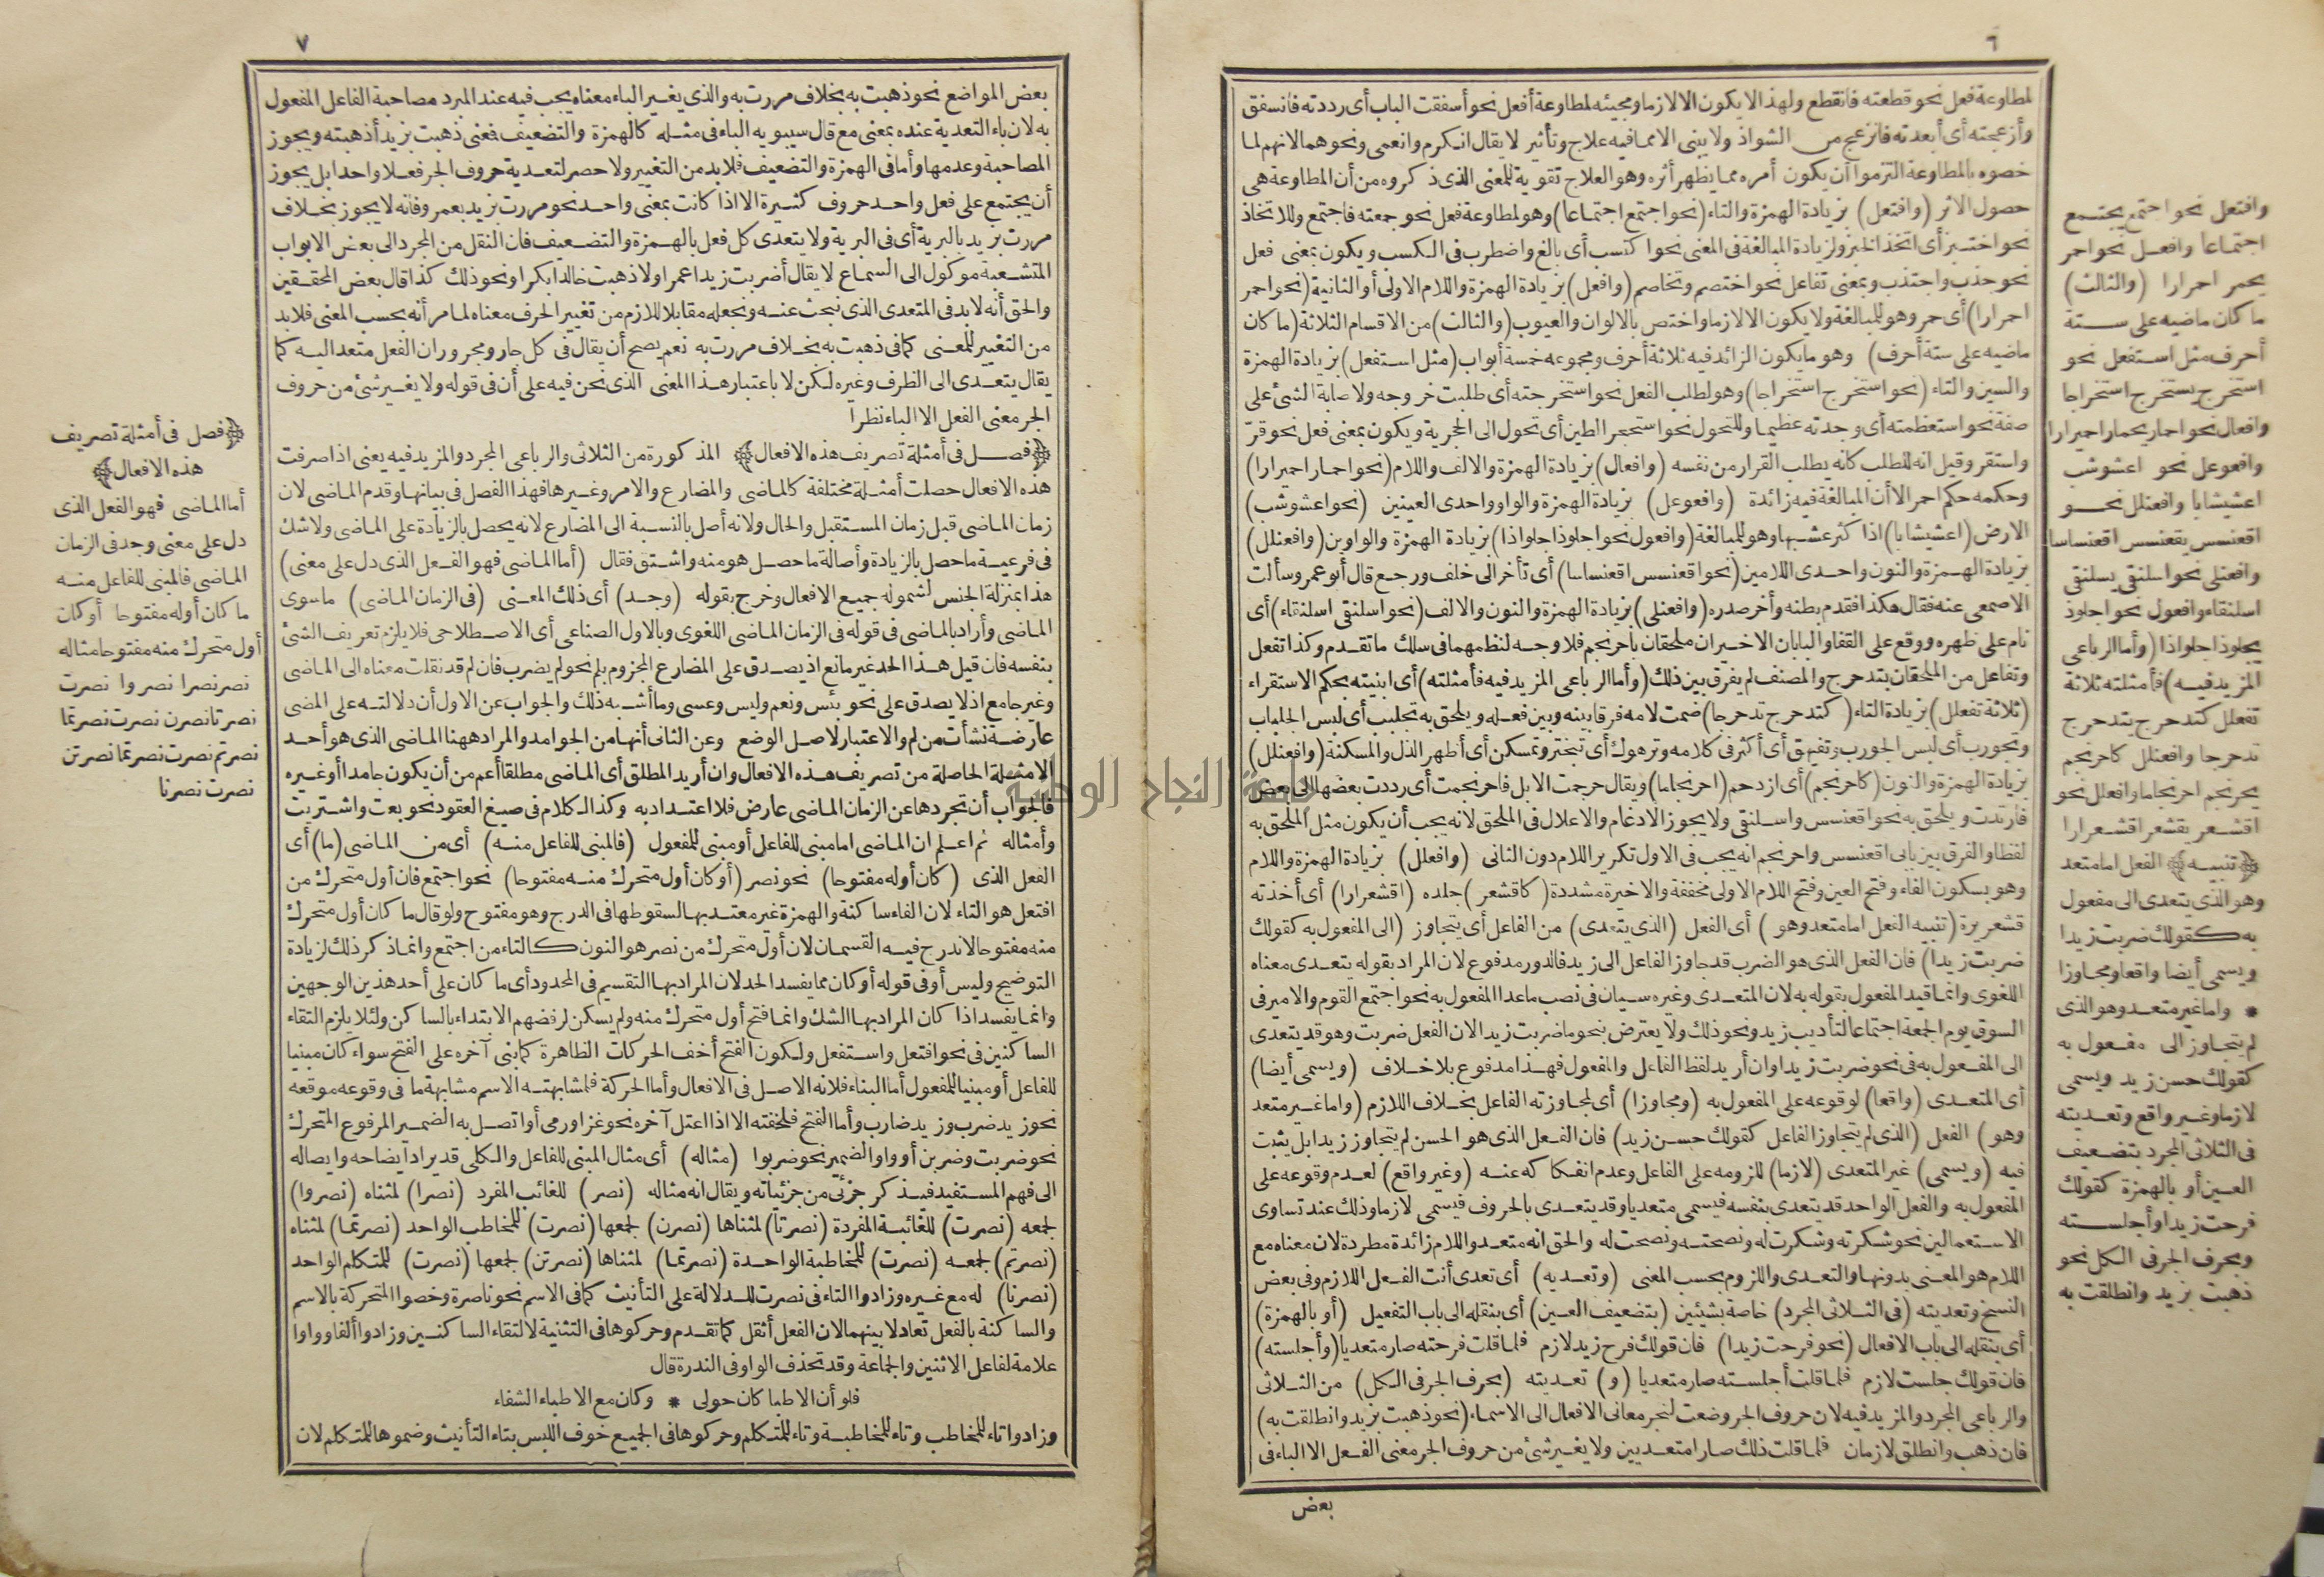 ٦
لمطاوعة فعل نحو قطعته فانقطع ولهذا لا يكون الا لازما ومجيئه لمطاوعة أفعل نحو أسفقت الباب أى رددته فانسفق
وأزعجته أى أبعدته فانزعج من الشواذ ولا يبنى الا مما فيه علاج وتأثير لا يقال انكرم وانعمى ونحوهما لانهم لما
خصوه بالمطاوعة التزموا أن يكون أمره مما يظهر أثره وهو العلاج تقوية للمعنى الذى ذكروه من أن المطاوعة هى
حصول الاثر (وافتعل) بزيادة الهمزة والتاء (نحو اجتمع اجتماعا) وهو لمطاوعة فعل نحو جمعته فاجتمع وللاتخاذ
نحو اختبز أى اتخذ الخبز ولزيادة المبالغة فى المعنى نحو اكتسب أى بالغ واضطرب فى الكسب ويكون بمعنى فعل
نحو جذب واجتذب وبمعنى تفاعل نحو اختصم وتخاصم (وافعل) بزيادة الهمزة واللام الاولى أو الثانية (نحو احمر
احمرارا) أى حمر وهو للمبالغة ولا يكون الا لازما واختص بالالوان والعيوب (والثالث) من الاقسام الثلاثة (ما كان
ماضيه على ستة أحرف) وهو ما يكون الزائد فيه ثلاثة أحرف ومجموعه خمسة أبواب (مثل استفعل) بزيادة الهمزة
والسين والتاء (نحو استخرج استخراجا) وهو لطلب الفعل نحو استخرجته أى طلبت خروجه ولاصابة الشئ على
صفة نحو استعظمته أى وجدته عظيما وللتحول نحو استحجر الطين أى تحول الى الحجرية ويكون بمعنى فعل نحو قر
واستقر وقيل انه للطلب كأنه يطلب القرار من نفسه (وافعال) بزيادة الهمزة والالف واللام (نحو احمار احميرارا)
وحكمه حكم احمر الا أن المبالغة فيه زائدة (وافعوعل) بزيادة الهمزة والواو واحدى العينين (نحو اعشوشب)
الارض (اعشيشابا) اذا كثر عشبها وهو للمبالغة (وافعول نحو اجلوذ اجلواذا) بزيادة الهمزة والواوين (وافعنلل)
بزيادة الهمزة والنون واحدى اللامين (نحو اقعنسس اقعنساسا) أى تأخر الى خلف ورجع قال أبو عمر وسألت
الاصمعى عنه فقال هكذا فقدم بطنه وأخر صدره (وافعنلى) بزيادة الهمزة والنون والالف (نحو اسلنقى اسلنقاء) أى
نام على ظهره ووقع على القفا والبابان الاخيران ملحقان باحرنجم فلا وجه لنظمهما فى سلك ما تقدم وكذا تفعل
وتفاعل من الملحقان بتدحرج والمصنف لم يفرق بين ذلك (وأما الرباعى المزيد فيه فأمثلته) أى ابنيته بحكم الاستقراء
(ثلاثة تفعلل) بزيادة التاء (كتدحرج تدحرجا) ضمت لامه فرقا بينه وبين فعله ويلحق به تجلبب أى لبس الجلباب
وتجورب أى لبس الجورب وتفيهق أى أكثر فى كلامه وترهوك أى تبختر وتمسكن أى أظهر الذل والمسكنة (وافعنلل)
بزيادة الهمزة والنون (كاحرنجم) أى ازدحم (احرنجاما) ويقال حرجمت الابل فاحرنجمت أى رددت بعضها الى بعض
فارتدت ويلحق به نحو اقعنسس واسلنقى ولا يجوز الادغام والاعلال فى الملحق لانه يجب أن يكون مثل الملحق به
لفظا والفرق بين بابى اقعنسس واحرنجم انه يجب فى الاول تكرير اللام دون الثانى (وافعلل) بزيادة الهمزة واللام
وهو بسكون الفاء وفتح العين وفتح اللام الاولى مخففة والاخيرة مشددة (كاقشعر) جلده (اقشعرارا) أى أخذته
قشعريرة (تنبيه الفعل اما متعد وهو) أى الفعل (الذى يتعدى) من الفاعل أى يتجاوز (الى المفعول به كقولك
ضربت زيدا) فان الفعل الذى هو الضرب قد جاوز الفاعل الى زيد فالدور مدفوع لان المراد بقوله يتعدى معناه
اللغوى وانما قيد المفعول بقوله به لان المتعدى وغيره سيان فى نصب ما عدا المفعول به نحو اجتمع القوم والامير فى
السوق يوم الجمعة اجتماعا لتأديب زيد ونحو ذلك ولا يعترض بنحو ما ضربت زيدا لان الفعل ضربت وهو قد يتعدى
الى المفعول به فى نحو ضربت زيدا وان أريد لفظ الفاعل والمفعول فهذا مدفوع بلا خلاف (ويسمى أيضا)
أى المتعدى (واقعا) لوقوعه على المفعول به (ومجاوزا) أى لمجاوزته الفاعل بخلاف اللازم (واما غير متعد
وهو) الفعل (الذى لم يتجاوز الفاعل كقولك حسن زيد) فان الفعل الذى هو الحسن لم يتجاوز زيدا بل يثبت
فيه (ويسمى) غير المتعدى (لازما) للزومه على الفاعل وعدم انفكاكه عنه (وغير واقع) لعدم وقوعه على
المفعول به والفعل الواحد قد يتعدى بنفسه فيسمى متعديا وقد يتعدى بالحروف فيسمى لازما وذلك عند تساوى
الاستعمالين نحو شكرته وشكرت له ونصحته ونصحت له والحق انه متعد واللام زائدة مطردة لان معناه مع
اللام هو المعنى بدونها والتعدى واللزوم بحسب المعنى (وتعديه) أى تعدى أنت الفعل اللازم وفى بعض
النسخ وتعديته (فى الثلاثى المجرد) خاصة بشيئين (بتضعيف العين) أى بنقله الى باب التفعيل (أو بالهمزة)
أى بنقله الى باب الافعال (نحو فرحت زيدا) فان قولك فرح زيد لازم فلما قلت فرحته صار متعديا (وأجلسته)
فان قولك جلست لازم فلما قلت أجلسته صار متعديا (و) تعديته (بحرف الجر فى الكل) من الثلاثى
والرباعى المجرد والمزيد فيه لان حروف الجر وضعت لتجر معانى الافعال الى الاسماء (نحو ذهبت بزيد وانطلقت به)
فان ذهب وانطلق لازمان فلما قلت ذلك صارا متعديين ولا يغير شئ من حروف الجر معنى الفعل الا الباء فى
بعض
وافتعل نحو اجتمع يجتمع
اجتماعا وافعل نحو احمر
يحمر احمرارا (والثالث)
ما كان ماضيه على ستة
أحرف مثل استفعل نحو
استخرج يستخرج استخراجا
وافعال نحو احمار يحمار احميرارا
وافعوعل نحو اعشوشب
اعشيشابا وافعنلل نحو
اقعنسس يقعنسس اقعنساسا
وافعنلى نحو اسلنقى يسلنقى
اسلنقاء وافعول نحو اجلوذ
يجلوذ اجلواذا (وأما الرباعى
المزيد فيه) فأمثلته ثلاثة
تفعلل كتدحرج يتدحرج
تدحرجا وافعنلل كاحرنجم
يحرنجم احرنجاما وافعلل نحو
اقشعر يقشعر اقشعرارا
﴿تنبيه﴾ الفعل اما متعد
وهو الذى يتعدى الى مفعول
به كقولك ضربت زيدا
ويسمى أيضا واقعا ومجاوزا
* واما غير متعد وهو الذى
لم يتجاوز الى مفعول به
كقولك حسن زيد ويسمى
لازما وغير واقع وتعديته
فى الثلاثى المجرد بتضعيف
العين أو بالهمزة كقولك
فرحت زيدا وأجلسته
وبحرف الجر فى الكل نحو
ذهبت بزيد وانطلقت به
٧
بعض المواضع نحو ذهبت به بخلاف مررت به والذى يغير الباء معناه يجب فيه عند المبرد مصاحبة الفاعل المفعول
به لان باء التعدية عنده بمعنى مع قال سيبويه الباء فى مثله كالهمزة والتضعيف فمعنى ذهبت بزيد أذهبته ويجوز
المصاحبة وعدمها وأما فى الهمزة والتضعيف فلا بد من التغيير ولا حصر لتعدية حروف الجر فعلا واحدا بل يجوز
أن يجتمع على فعل واحد حروف كثيرة الا اذا كانت بمعنى واحد نحو مررت بزيد بعمرو فانه لا يجوز بخلاف
مررت بزيد بالبرية أى فى البرية ولا يتعدى كل فعل بالهمزة والتضعيف فان النقل من المجرد الى بعض الابواب
المتشعبة موكول الى السماع لا يقال أضربت زيدا عمرا ولا ذهبت خالدا بكرا ونحو ذلك كذا قال بعض المحققين
والحق أنه لا بد فى المتعدى الذى نبحث عنه ونجعله مقابلا للازم من تغيير الحرف معناه لما مر أنه بحسب المعنى فلا بد
من التغيير للمعنى كما فى ذهبت به بخلاف مررت به نعم يصح أن يقال فى كل جار ومجرور ان الفعل متعد اليه كما
يقال يتعدى الى الظرف وغيره لكن لا باعتبار هذا المعنى الذى نحن فيه على أن فى قوله ولا يغير شئ من حروف
الجر معنى الفعل الا الباء نظرا
﴿فصل فى أمثلة تصريف هذه الافعال﴾ المذكورة من الثلاثى والرباعى المجرد والمزيد فيه يعنى اذا صرفت
هذه الافعال حصلت أمثلة مختلفة كالماضى والمضارع والامر وغيرها فهذا الفصل فى بيانها وقدم الماضى لان
زمان الماضى قبل زمان المستقبل والحال ولانه أصل بالنسبة الى المضارع لانه يحصل بالزيادة على الماضى ولا شك
فى فرعية ما حصل بالزيادة وأصالة ما حصل هو منه واشتق فقال (أما الماضى فهو الفعل الذى دل على معنى)
هذا بمنزلة الجنس لشموله جميع الافعال وخرج بقوله (وجد) أى ذلك المعنى (فى الزمان الماضى) ما سوى
الماضى وأراد بالماضى فى قوله فى الزمان الماضى اللغوى وبالاول الصناعى أى الاصطلاحى فلا يلزم تعريف الشئ
بنفسه فان قيل هذا الحد غير مانع اذ يصدق على المضارع المجزوم بلم نحو لم يضرب فان لم قد نقلت معناه الى الماضى
وغير جامع اذ لا يصدق على نحو بئس ونعم وليس وعسى وما أشبه ذلك والجواب عن الاول أن دلالته على المضى
عارضة نشأت من لم والاعتبار لاصل الوضع وعن الثانى أنها من الجوامد والمراد ههنا الماضى الذى هو أحد
الامثلة الحاصلة من تصريف هذه الافعال وان أريد المطلق أى الماضى مطلقا أعم من أن يكون جامدا أو غيره
فالجواب أن تجردها عن الزمان الماضى عارض فلا اعتداد به وكذا الكلام فى صيغ العقود نحو بعت واشتريت
وأمثاله ثم اعلم ان الماضى اما مبنى للفاعل أو مبنى للمفعول (فالمبنى للفاعل منه) أى من الماضى (ما) أى
الفعل الذى (كان أوله مفتوحا) نحو نصر (أو كان أول متحرك منه مفتوحا) نحو اجتمع فان أول متحرك من
افتعل هو التاء لان الفاء ساكنة والهمزة غير معتد بها لسقوطها فى الدرج وهو مفتوح ولو قال ما كان أول متحرك
منه مفتوحا لاندرج فيه القسمان لان أول متحرك من نصر هو النون كالتاء من اجتمع وانما ذكر ذلك لزيادة
التوضيح وليس أو فى قوله أو كان مما يفسد الحد لان المراد بها التقسيم فى المحدود أى ما كان على أحد هذين الوجهين
وانما يفسد اذا كان المراد بها الشك وانما فتح أول متحرك منه ولم يسكن لرفضهم الابتداء بالساكن ولئلا يلزم التقاء
الساكنين فى نحو افتعل واستفعل ولكون الفتح أخف الحركات الظاهرة كما بنى آخره على الفتح سواء كان مبنيا
للفاعل أو مبنيا للمفعول أما البناء فلانه الاصل فى الافعال وأما الحركة فلمشابهته الاسم مشابهة ما فى وقوعه موقعه
نحو زيد ضرب وزيد ضارب وأما الفتح فلخفته الا اذا اعتل آخره نحو غزا ورمى أو اتصل به الضمير المرفوع المتحرك
نحو ضربت وضربن أو واو الضمير نحو ضربوا (مثاله) أى مثال المبنى للفاعل والكلى قد يراد ايضاحه وايصاله
الى فهم المستفيد فيذكر جزئى من جزئياته ويقال انه مثاله (نصر) للغائب المفرد (نصرا) لمثناه (نصروا)
لجمعه (نصرت) للغائبة المفردة (نصرتا) لمثناها (نصرن) لجمعها (نصرت) للمخاطب الواحد (نصرتما) لمثناه
(نصرتم) لجمعه (نصرت) للمخاطبة الواحدة (نصرتما) لمثناها (نصرتن) لجمعها (نصرت) للمتكلم الواحد
(نصرنا) له مع غيره وزادوا التاء فى نصرت للدلالة على التأنيث كما فى الاسم نحو ناصرة وخصوا المتحركة بالاسم
والساكنة بالفعل تعادلا بينهما لان الفعل أثقل كما تقدم وحركوها فى التثنية لالتقاء الساكنين وزادوا ألفا وواوا
علامة لفاعل الاثنين والجماعة وقد تحذف الواو فى الندرة قال
فلو أن الاطبا كان حولى * وكان مع الاطباء الشفاء
وزادوا تاء للمخاطب وتاء للمخاطبة وتاء للمتكلم وحركوها فى الجميع خوف اللبس بتاء التأنيث وضموها للمتكلم لان
﴿فصل فى أمثلة تصريف
هذه الافعال﴾
أما الماضى فهو الفعل الذى
دل على معنى وجد فى الزمان
الماضى فالمبنى للفاعل منه
ما كان أوله مفتوحا أو كان
أول متحرك منه مفتوحا مثاله
نصر نصرا نصروا نصرت
نصرتا نصرن نصرت نصرتما
نصرتم نصرت نصرتما نصرتن
نصرت نصرنا
جامعة النجاح الوطنية